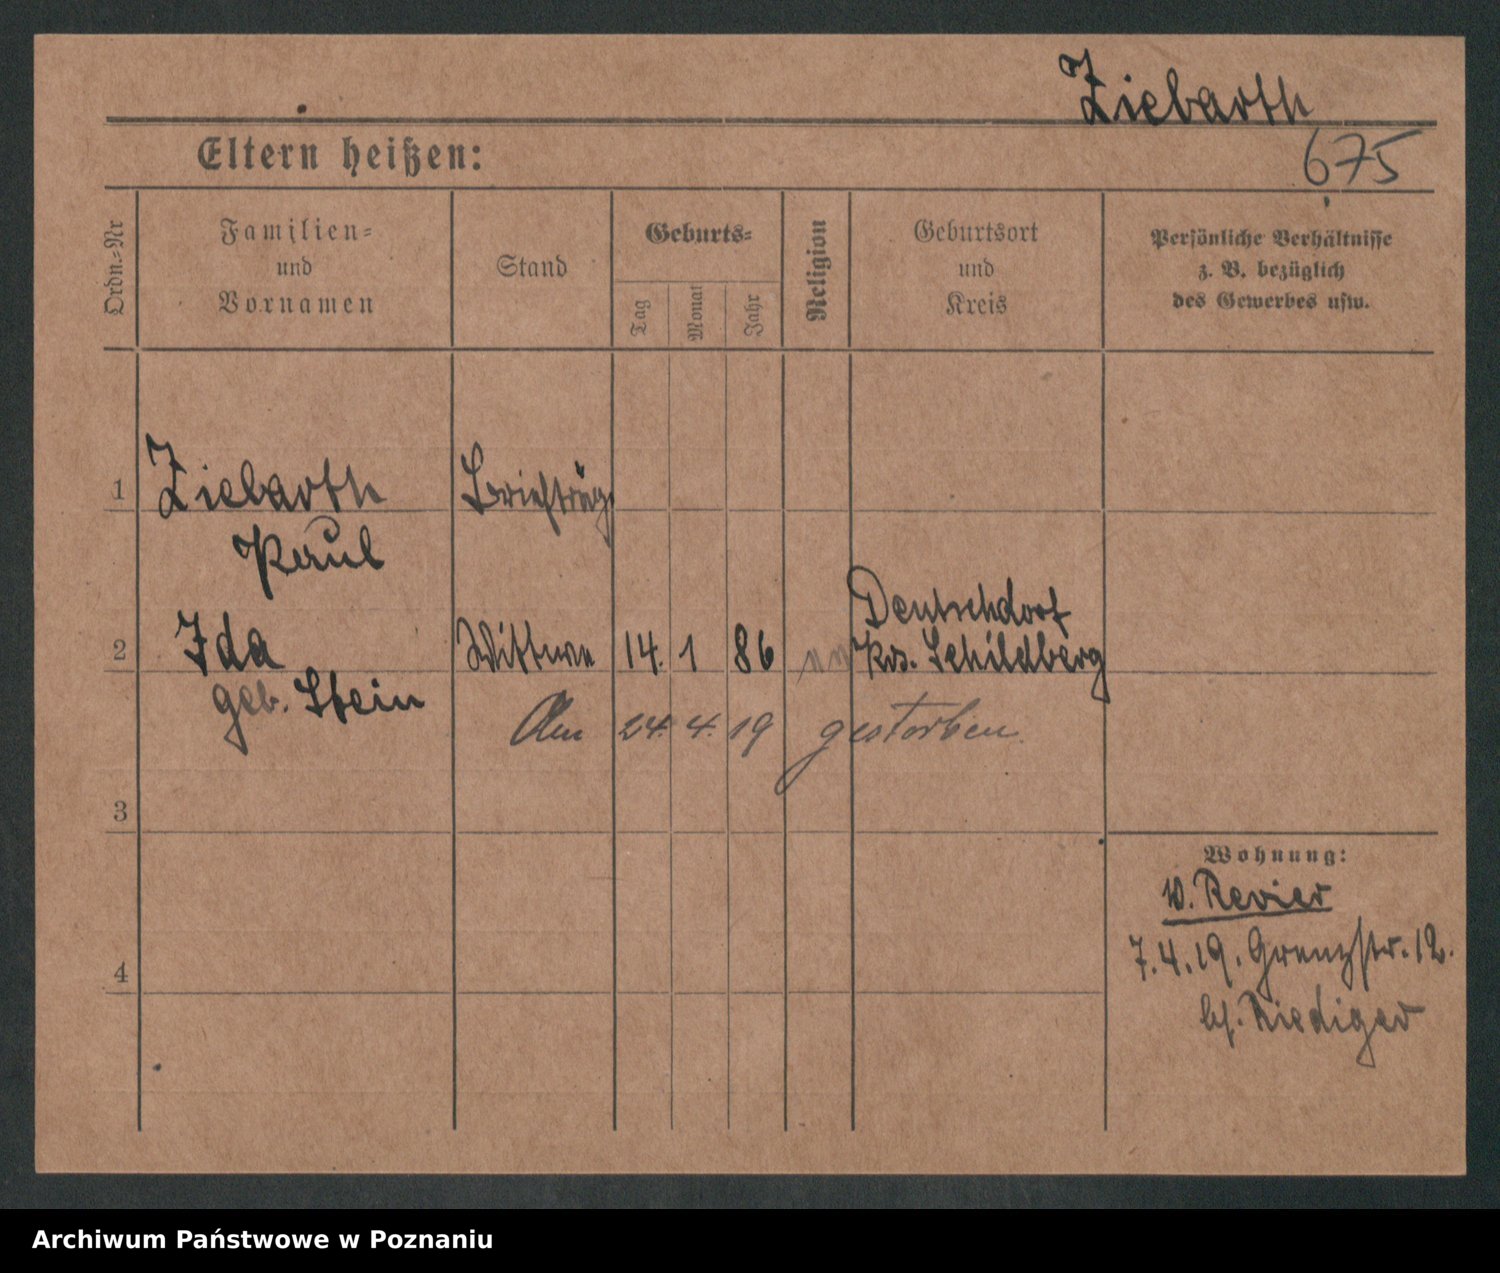 Ziebarth
675
Eltern heißen:
Ordn.-Nr
Familien-
und
Vornamen
Stand
Geburts-
Tag
Monat
Jahr
Religion
Geburtsort
und
Kreis
Persönliche Verhältnisse
z. B. bezüglich
des Gewerbes usw.
1 Ziebarth Briefträg
Paul
Deutschdorf
2 Ida Wittwe 14. 1 86 Krs. Schildberg
geb. Stein
Am 24. 4. 19 gestorben.
3
Wohnung:
10. Revier
7.4.19. Grenzstr. 12.
4
bf. Riediger
Archiwum Państwowe w Poznaniu